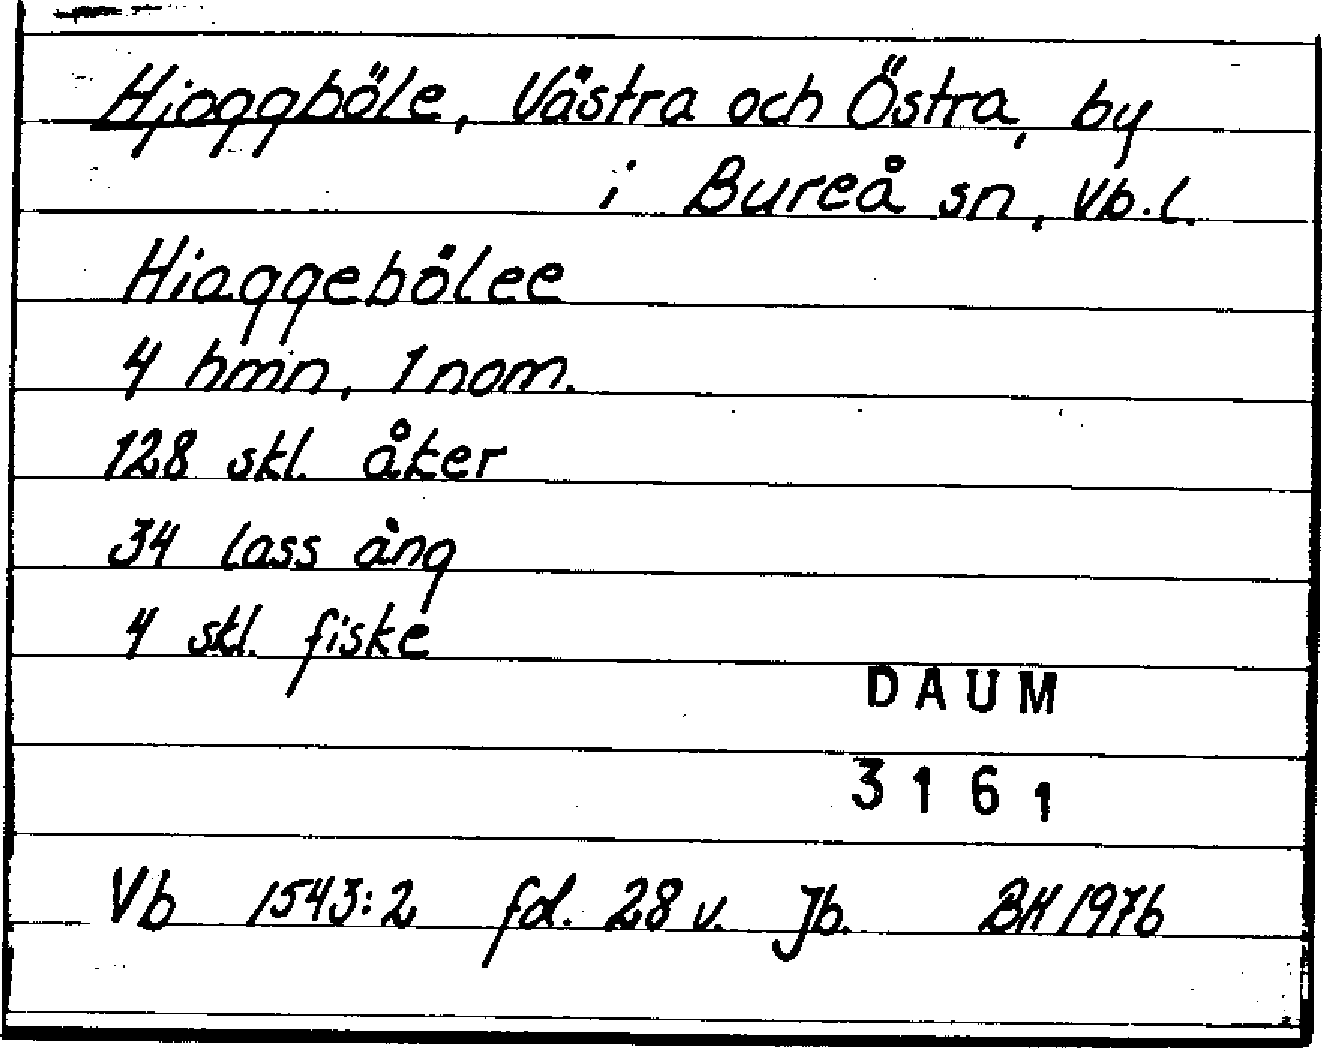 Hjoggböle, Västra och Östra, by
i Bureå sn, Vb.l.
Hiaggebölee
4 hmn, 1 nom.
128 skl. åker
34 lass äng
4 skl. fiske
DAUM
3161
Vb 1543:2 fol. 28 v. Jb. BH 1976